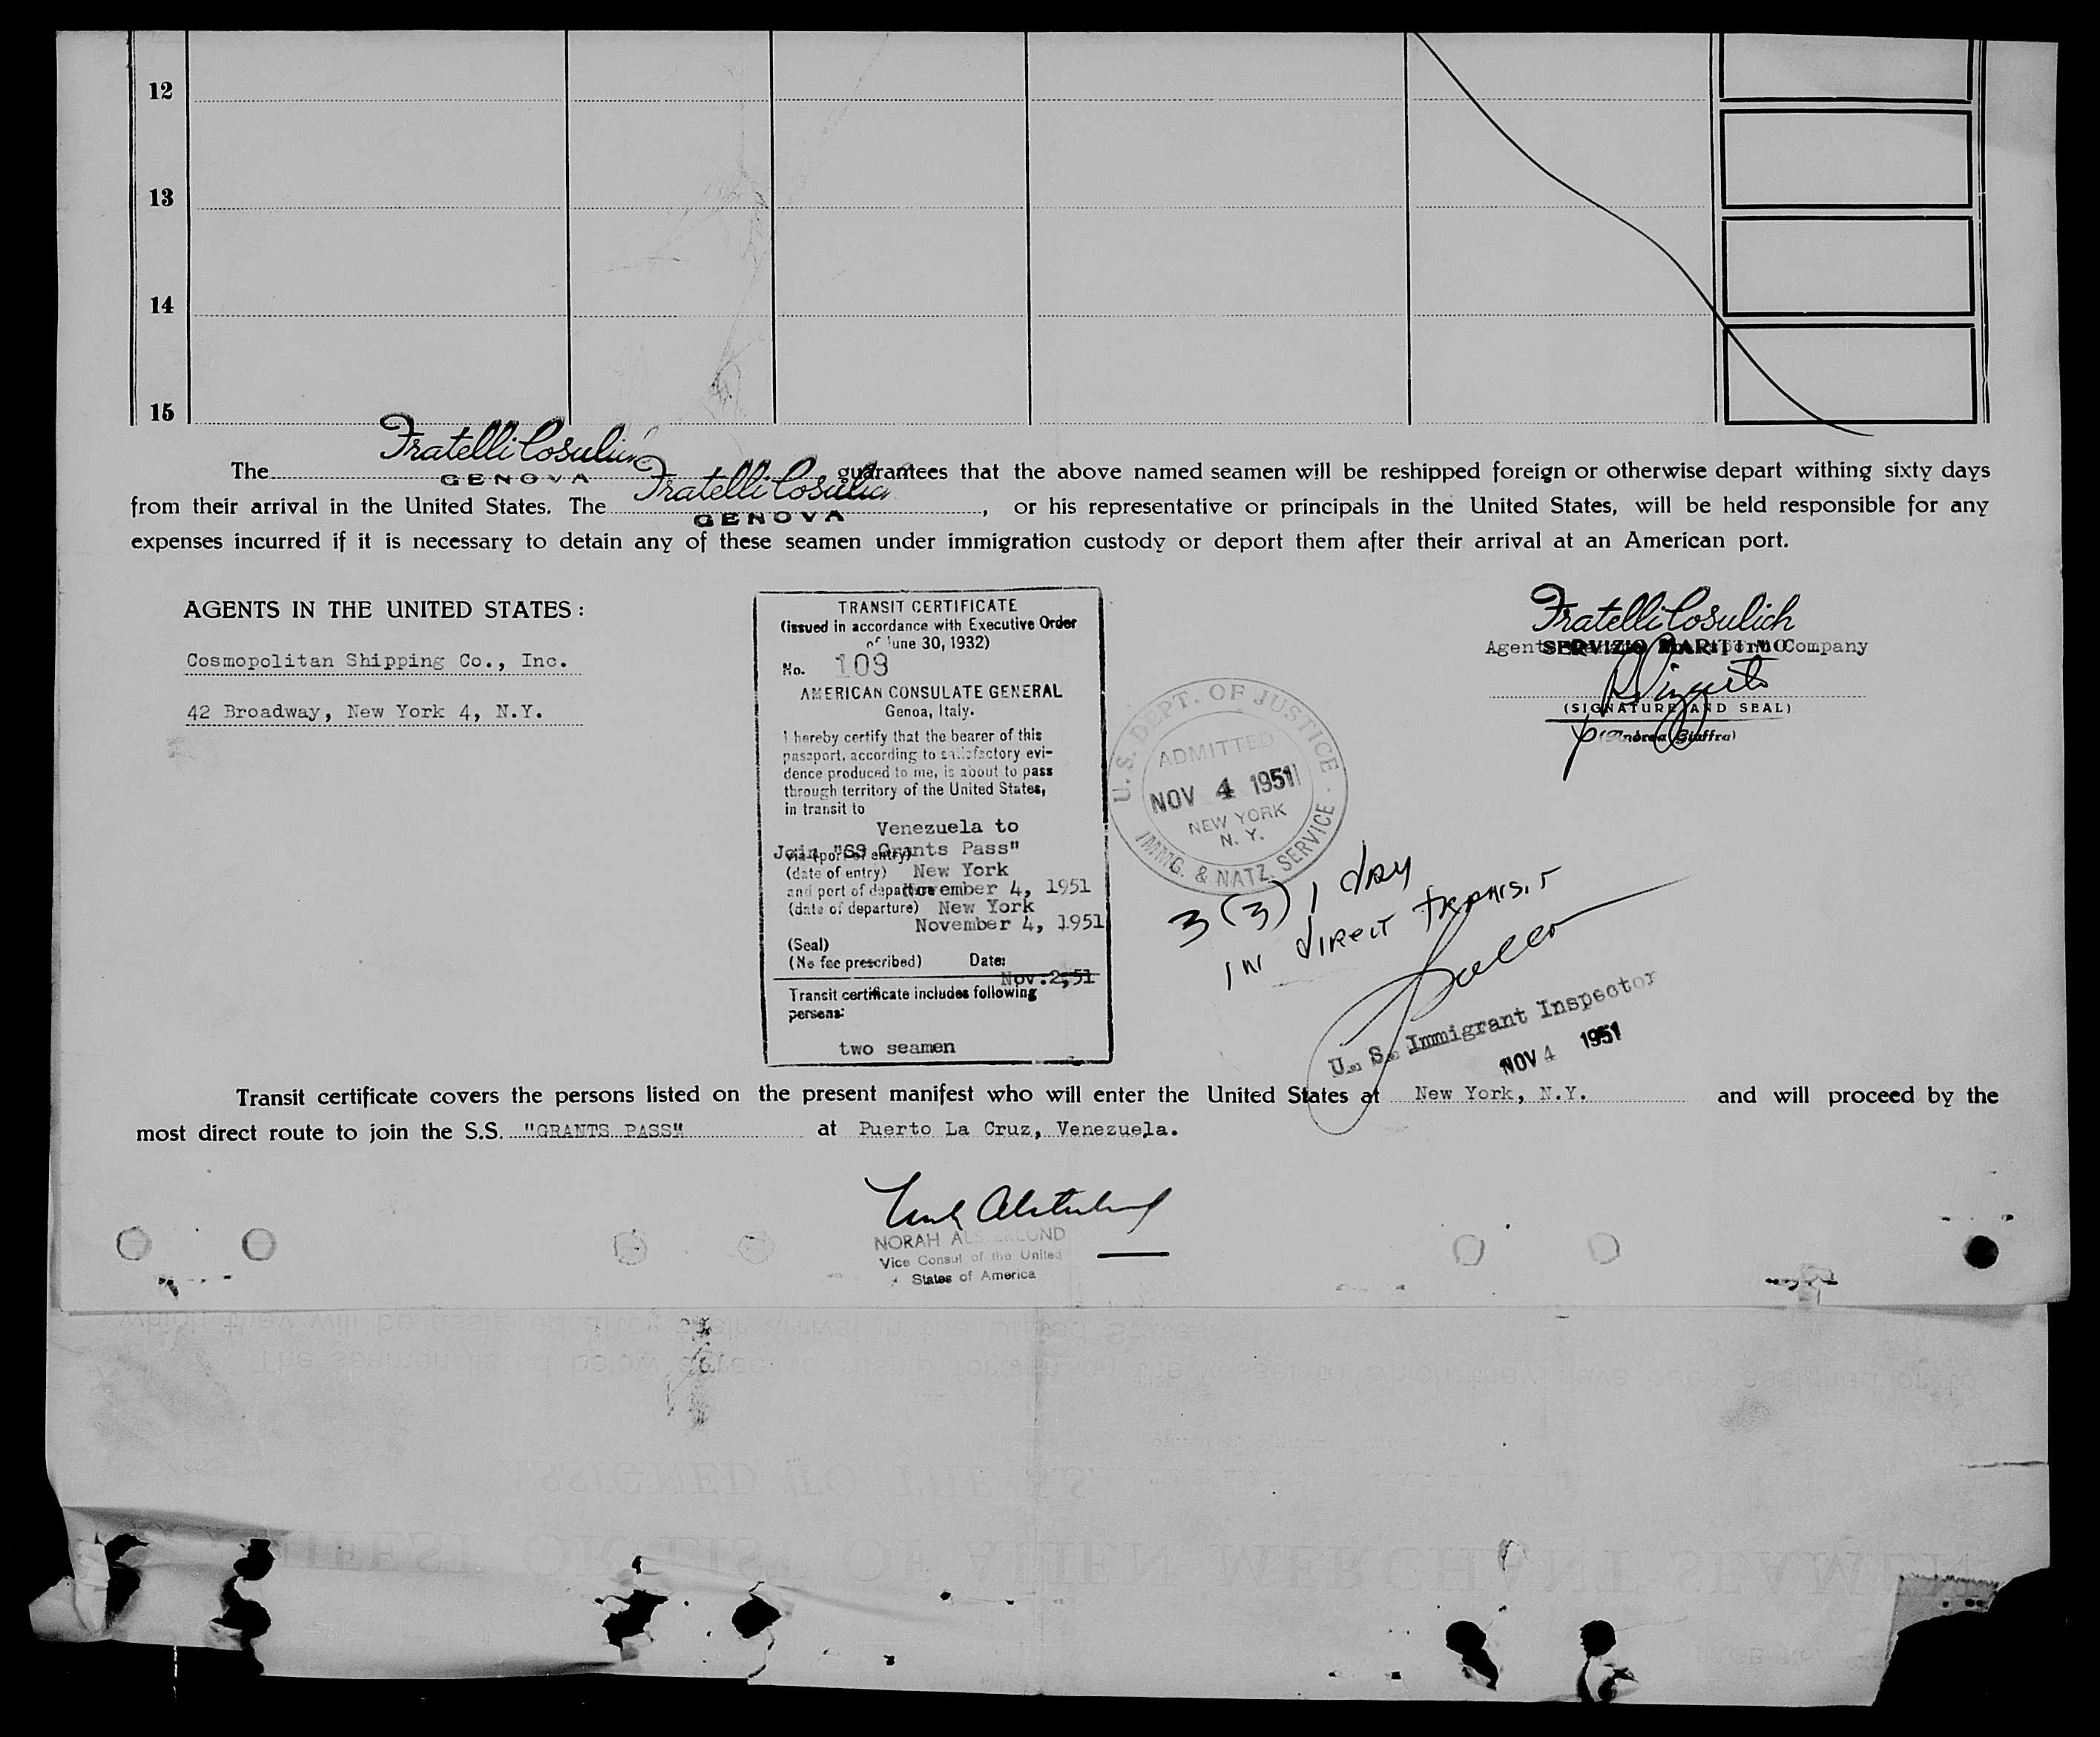 12
13
14
15
The Fratelli Cosulich GENOVA guarantees that the above named seamen will be reshipped foreign or otherwise depart withing sixty days
from their arrival in the United States. The Fratelli Cosulich GENOVA, or his representative or principals in the United States, will be held responsible for any
expenses incurred if it is necessary to detain any of these seamen under immigration custody or deport them after their arrival at an American port.
AGENTS IN THE UNITED STATES:
Cosmopolitan Shipping Co., Inc.
42 Broadway, New York 4, N.Y.
TRANSIT CERTIFICATE
(issued in accordance with Executive Order
of June 30, 1932)
No. 109
AMERICAN CONSULATE GENERAL
Genoa, Italy.
I hereby certify that the bearer of this
passport, according to satisfactory evi-
dence produced to me, is about to pass
through territory of the United States,
in transit to
Venezuela to
Join "SS Grants Pass"
via (port of entry)
(date of entry) New York
and port of departure November 4, 1951
(date of departure) New York
November 4, 1951
(Seal)
(No fee prescribed) Date:
Nov. 2, 51
Transit certificate includes following
persons:
two seamen
U. S. DEPT. OF JUSTICE
ADMITTED
NOV 4 1951
NEW YORK
N. Y.
IMMG. & NATZ. SERVICE
3 (3) 1 day
in direct transit
U. S. Immigrant Inspector
NOV 4 1951
Fratelli Cosulich
SERVIZIO MARITTIMO
Agents Company
(SIGNATURE AND SEAL)
(Andrea Giaffra)
Transit certificate covers the persons listed on the present manifest who will enter the United States at New York, N.Y. and will proceed by the
most direct route to join the S.S. "GRANTS PASS" at Puerto La Cruz, Venezuela.
NORAH
Vice Consul of the United
States of America